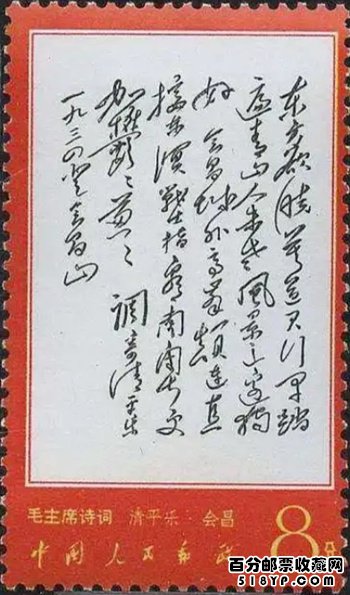 东方欲晓莫道君行早踏
遍青山人未老风景这边独
好 会昌城外高峰颠连直
接东溟战士指看南粤更
加鬱〻葱〻 调寄清平乐
一九三四登会昌山
毛主席诗词 清平乐·会昌
中国人民邮政
8分
百分邮票收藏网
518YP.com